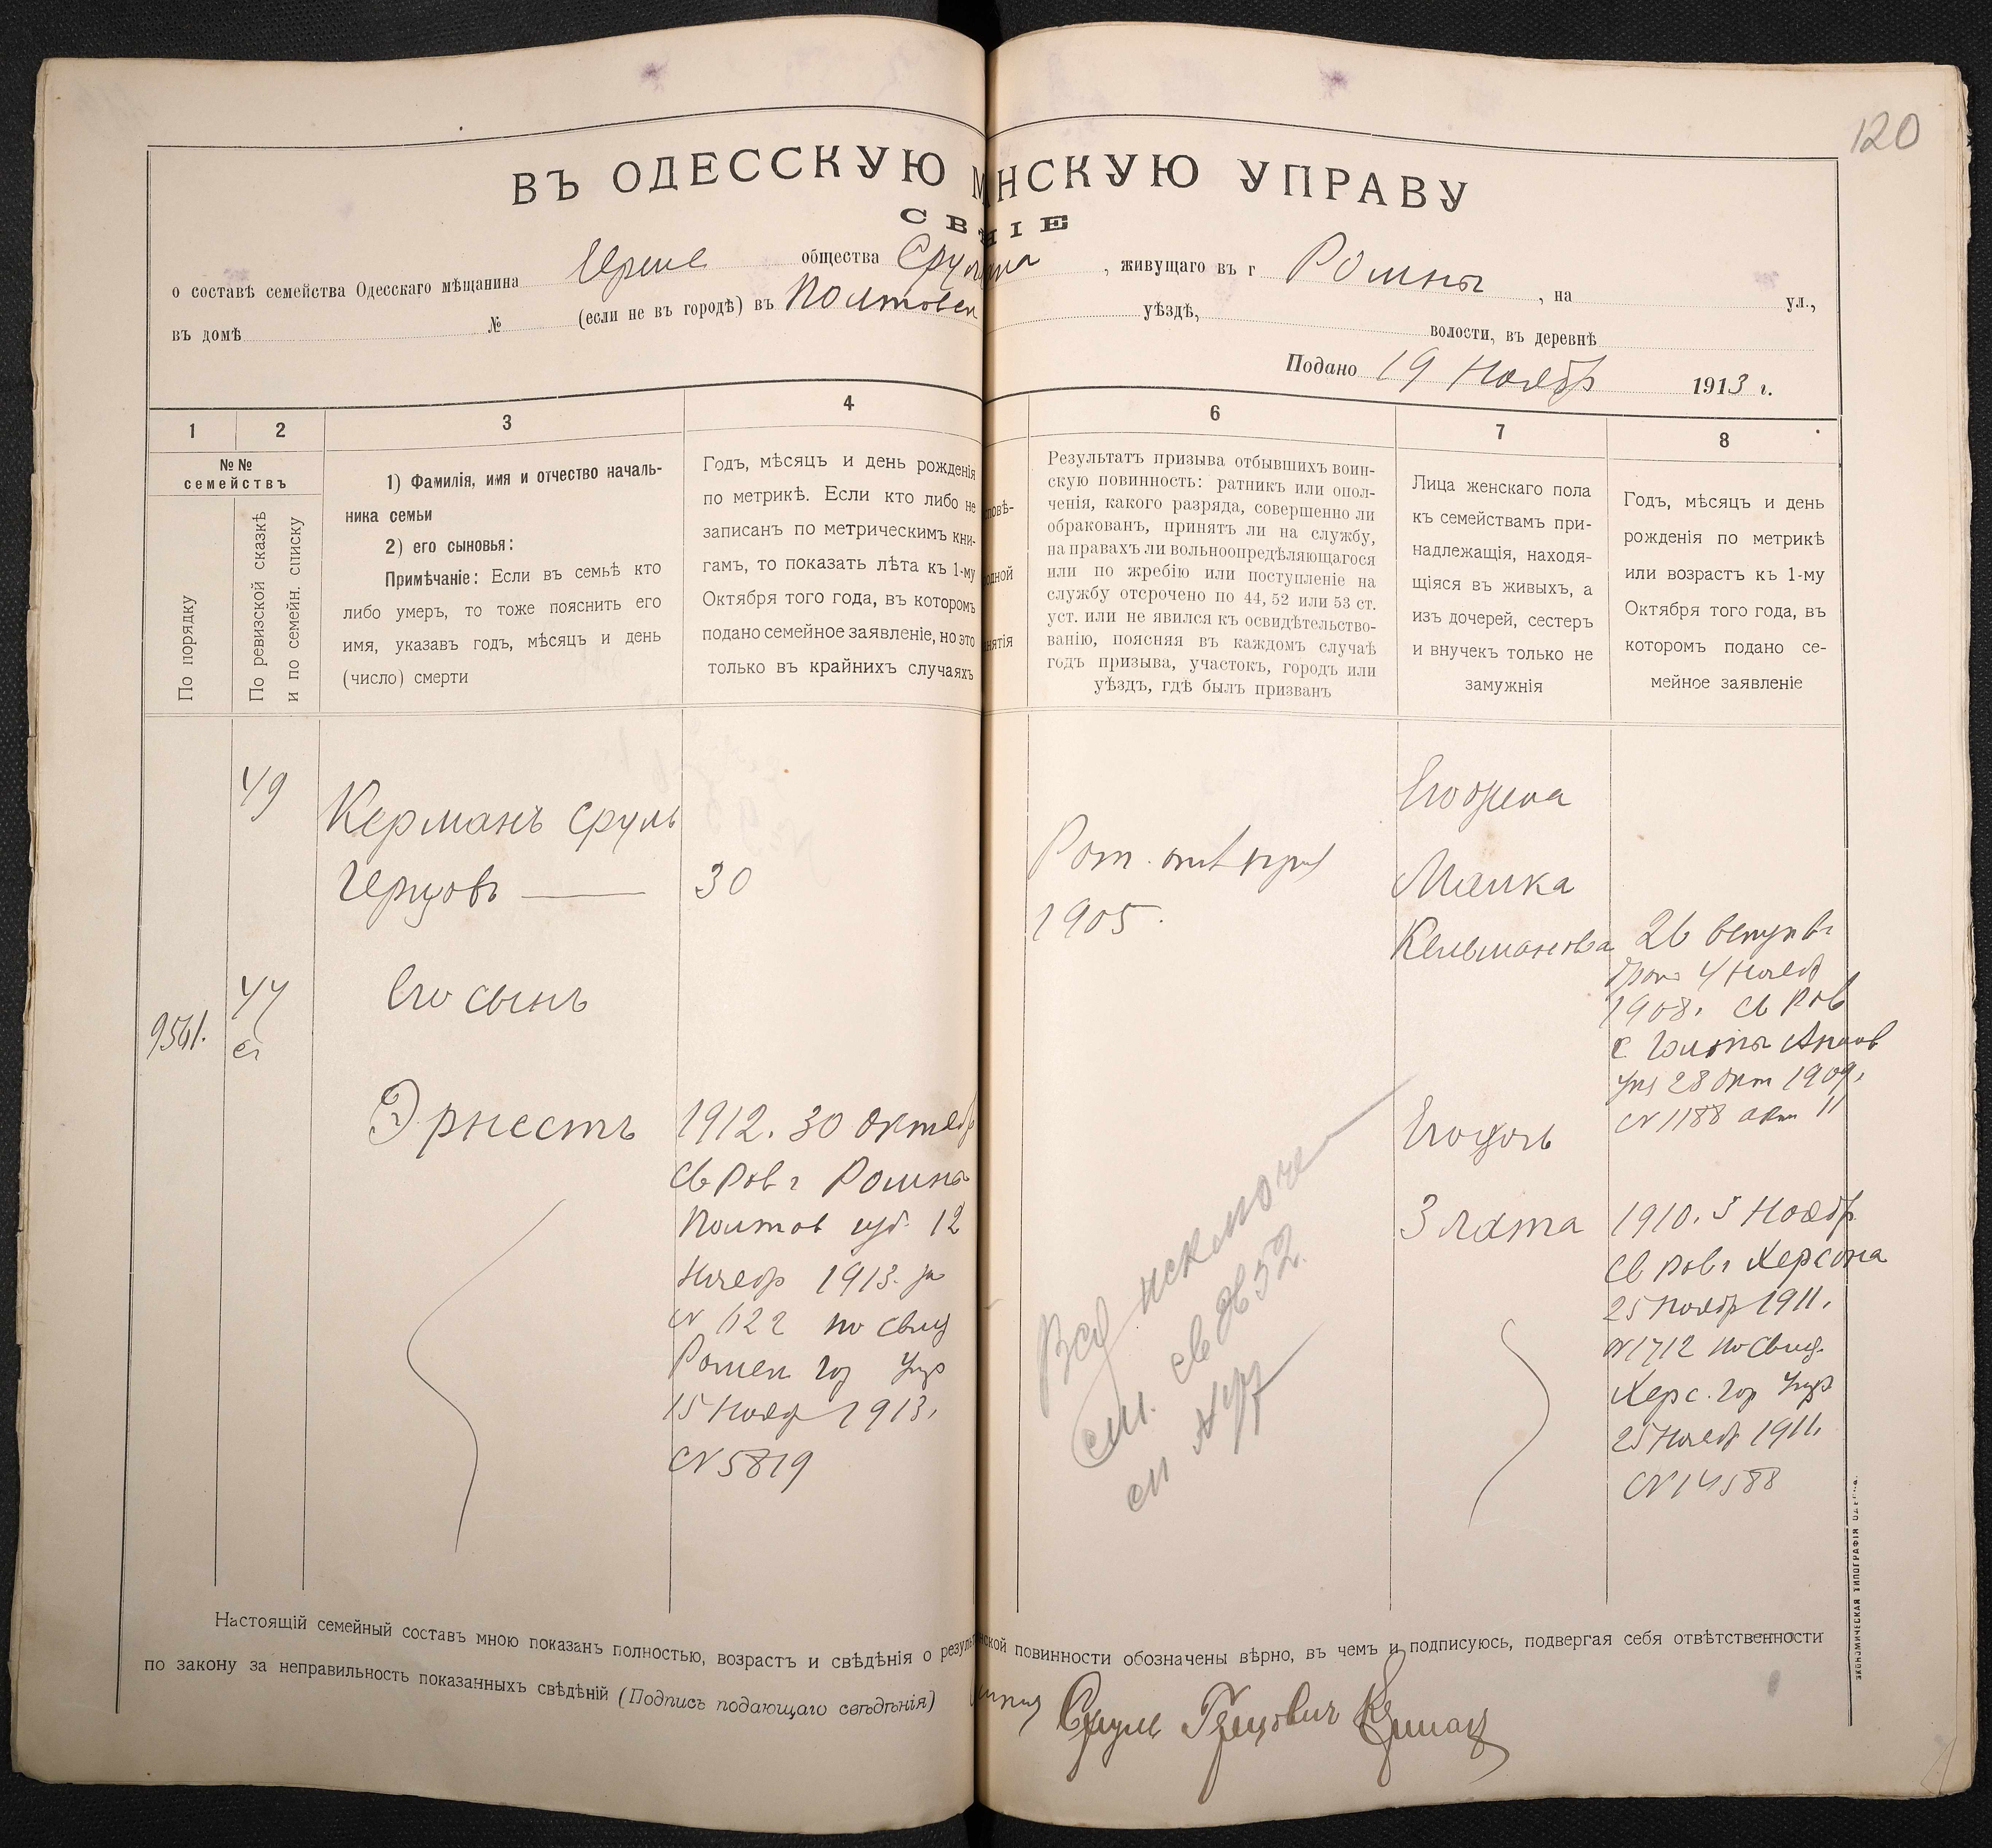 120
ВЪ ОДЕССКУЮ М НСКУЮ УПРАВУ
СВ НІЕ
о составѣ семейства Одесскаго мѣщанина общества Срул , живущаго въ г Ромны , на ул.,
въ домѣ № (если не въ городѣ) въ Полтовск уѣздѣ, волости, въ деревнѣ
Подано 19 Ноябр 1913 г.
1
2
3
4
6
7
8
№№ семействъ
По порядку
По ревизской сказкѣ
и по семейн. списку
1) Фамилія, имя и отчество началь-
ника семьи
2) его сыновья:
Примѣчаніе: Если въ семьѣ кто
либо умеръ, то тоже пояснить его
имя, указавъ годъ, мѣсяцъ и день
(число) смерти
Годъ, мѣсяцъ и день рожденія
по метрикѣ. Если кто либо не
записанъ по метрическимъ кни-
гамъ, то показать лѣта къ 1-му
Октября того года, въ которомъ
подано семейное заявленіе, но это
только въ крайнихъ случаяхъ
повѣ-
одной
нятія
Результатъ призыва отбывшихъ воин-
скую повинность: ратникъ или опол-
ченія, какого разряда, совершенно ли
обракованъ, принятъ ли на службу,
на правахъ ли вольноопредѣляющагося
или по жребію или поступленіе на
службу отсрочено по 44, 52 или 53 ст.
уст. или не явился къ освидѣтельство-
ванію, поясняя въ каждомъ случаѣ
годъ призыва, участокъ, городъ или
уѣздъ, гдѣ былъ призванъ
Лица женскаго пола
къ семействамъ при-
надлежащія, находя-
щіяся въ живыхъ, а
изъ дочерей, сестеръ
и внучекъ только не
замужнія
Годъ, мѣсяцъ и день
рожденія по метрикѣ
или возрастъ къ 1-му
Октября того года, въ
которомъ подано се-
мейное заявленіе
9561.
49
Керманъ Сруль
Герцовъ
30
44
Его сынъ
Эрнестъ
1912. 30 Октяб
Св Рав г Ромны
Полтов губ. 12
Ноябр 1913. за
№ 622 по свид
Ромен гор Упр
15 Нояб 1913.
№ 5819
Рат.
1905.
Все исключе
см.
Его жена
Малка
Кельманова
26 вступ въ
бракъ 4 Нояб
1908. Св Рав
28 Окт 1909.
№ 1188 акт 11
Его дочь
Злата
1910. 5 Ноябр
Св Рав г Херсона
25 Нояб 1911.
№ 1712 по свид.
Херс. гор Упр
25 Нояб 1911.
№ 14588
Настоящій семейный составъ мною показанъ полностью, возрастъ и свѣдѣнія о резуль нской повинности обозначены вѣрно, въ чемъ и подписуюсь, подвергая себя отвѣтственности
по закону за неправильность показанныхъ свѣдѣній (Подпись подающаго свѣдѣнія) Сруль Герцович Керман
ЭКОНОМИЧЕСКАЯ ТИПОГРАФІЯ ОДЕССА.